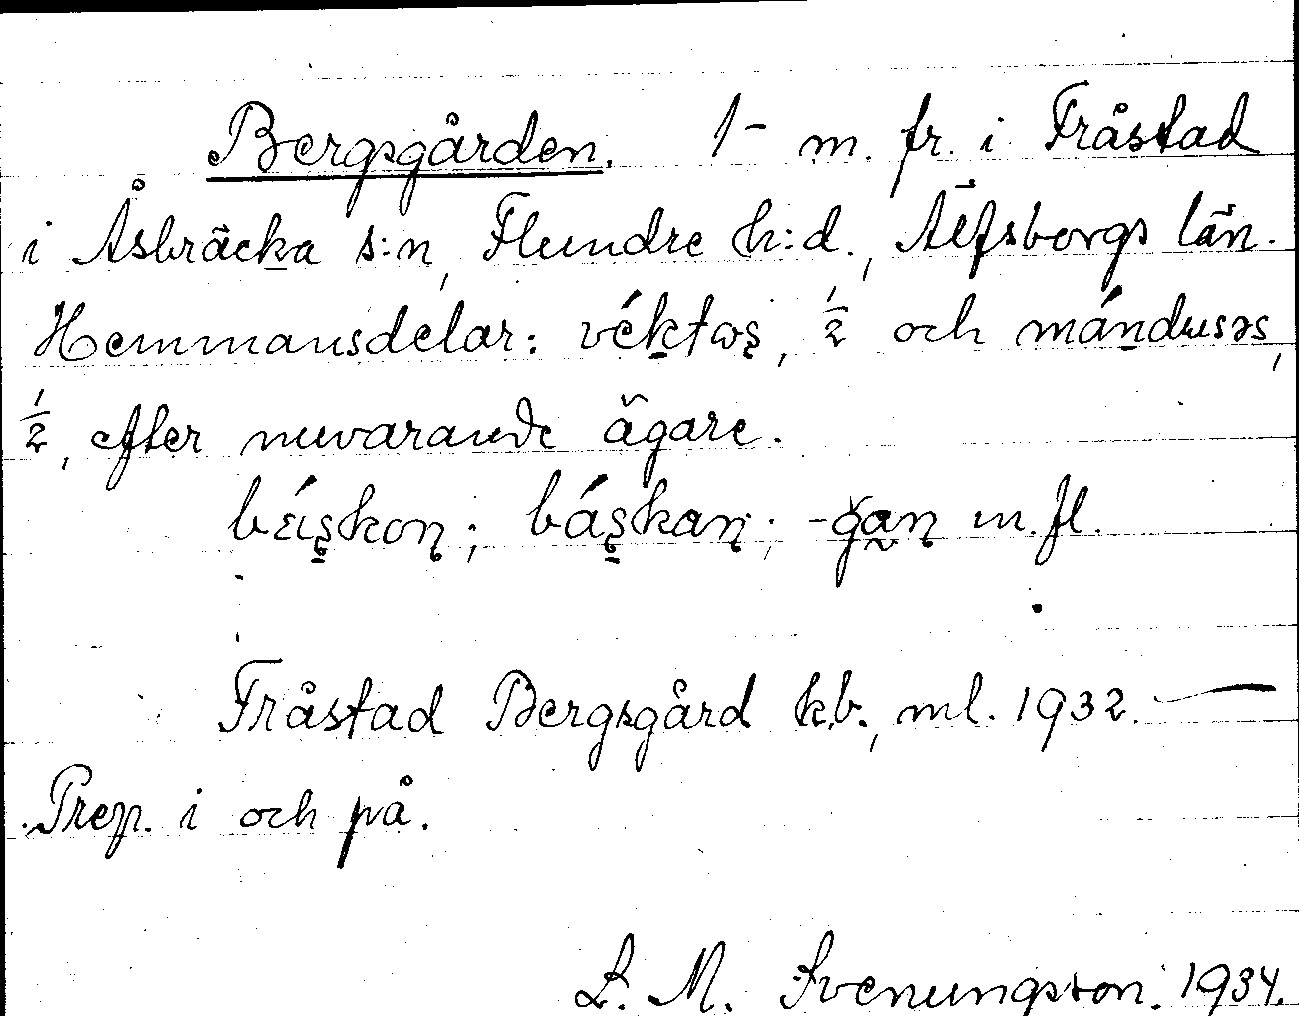 Bergsgården. 1- m. fr. i Fråstad
i Åsbräcka s:n, Flundre h:d., Älfsborgs län.
Hemmansdelar: véktωʂ, 1/2 och mándusəs,
1/2, efter nuvarande ägare.
béiʂkoɳ; báʂkaɳ; -gaɳ m. fl.
Fråstad Bergsgård kb., ml. 1932. —
Prep. i och på.
L. M. Svenungsson. 1934.